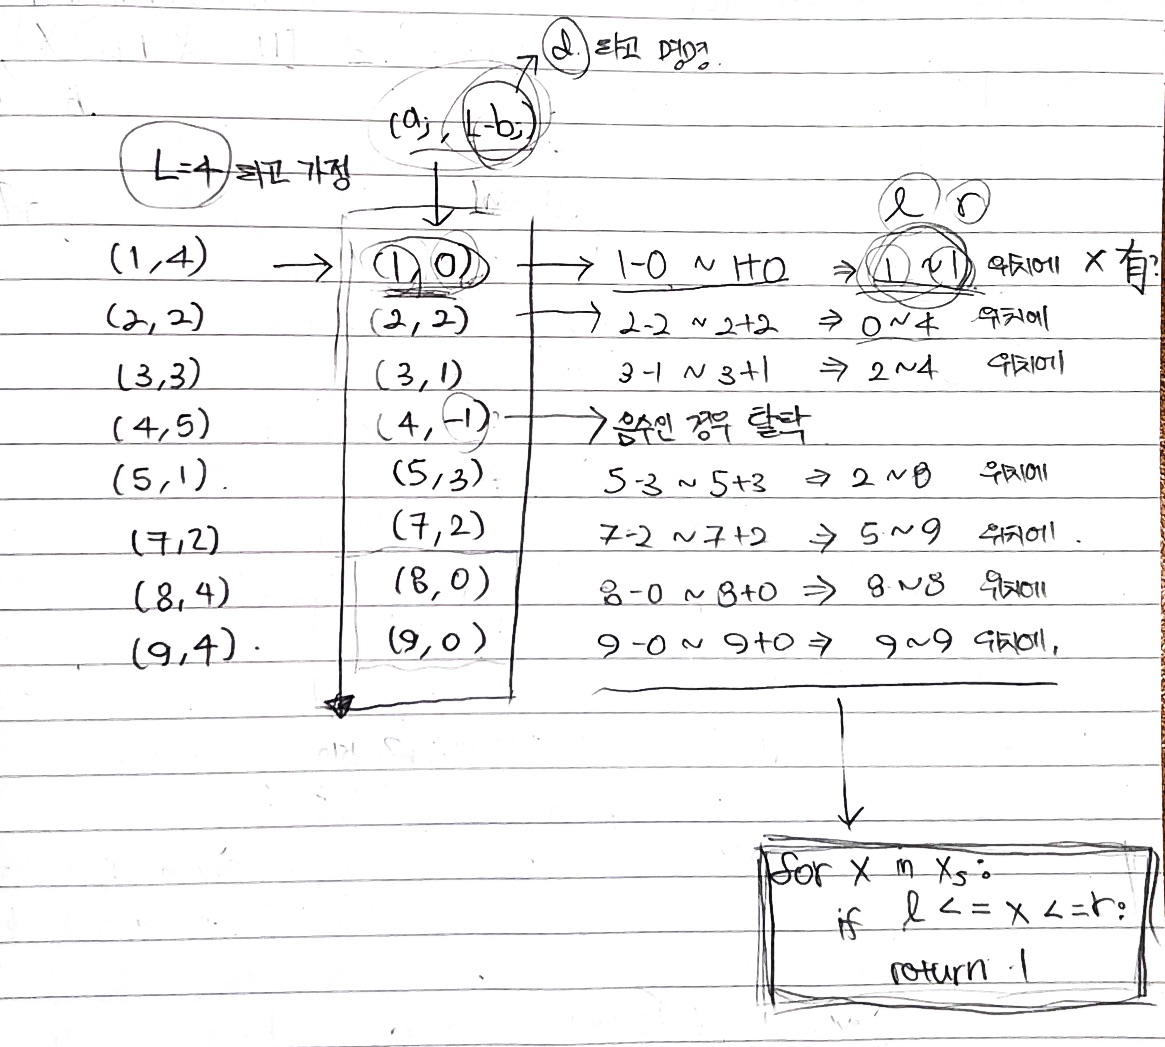 d 라고 명명.
(aⱼ, L-bⱼ)
L=4 라고 가정
l r
(1,4) → (1, 0) → 1-0 ~ 1+0 ⇒ 1 ~ 1 위치에 x 有?
(2, 2) (2, 2) → 2-2 ~ 2+2 ⇒ 0~4 위치에
(3,3) (3, 1) 3-1 ~ 3+1 ⇒ 2~4 위치에
(4,5) (4, -1) → 음수인 경우 탈락
(5,1). (5,3) 5-3 ~ 5+3 ⇒ 2~8 위치에
(7,2) (7,2) 7-2 ~ 7+2 ⇒ 5~9 위치에.
(8,4) (8,0) 8-0 ~ 8+0 ⇒ 8~8 위치에
(9,4). (9,0) 9-0 ~ 9+0 ⇒ 9~9 위치에.
for x in xs:
if l <= x <= r:
return 1